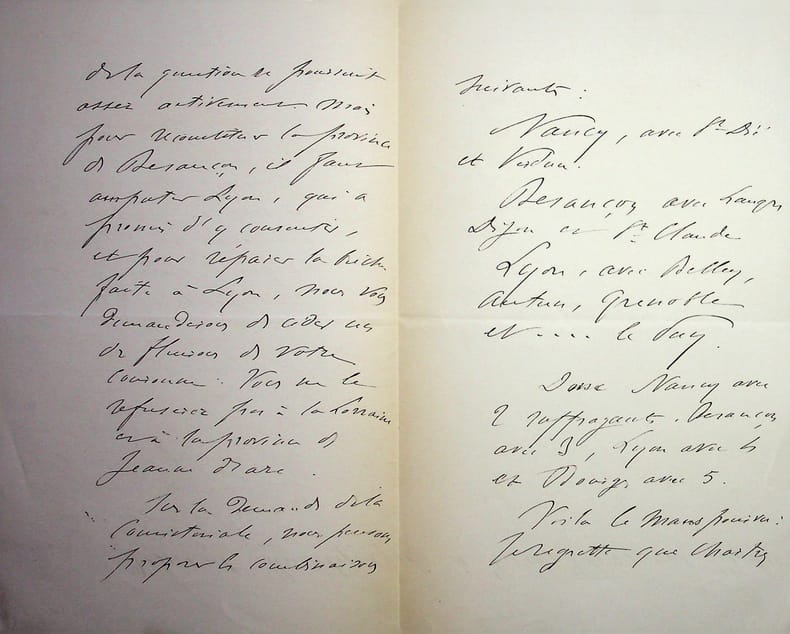 de la question se poursuit
assez activement. Mais
pour reconstituer la province
de Besançon, il faut
amputer Lyon, qui a
promis d'y consentir,
et pour réparer la brèche
faite à Lyon, nous vous
demanderions de céder un
de fleurons de votre
couronne. Vous ne le
refuserez pas à la Lorraine
et à la province de
Jeanne d'arc.
Sur la demande de la
Consistoriale, nous pensons
proposer les combinaisons
suivantes :
Nancy, avec St Dié
et Verdun.
Besançon avec Langres
Dijon et St Claude
Lyon, avec Belley,
Autun, Grenoble
et .... le Puy.
Donc Nancy avec
2 suffragants. Besançon
avec 3, Lyon avec 4
et Bourges avec 5.
Voilà le
Je regrette que Chartres